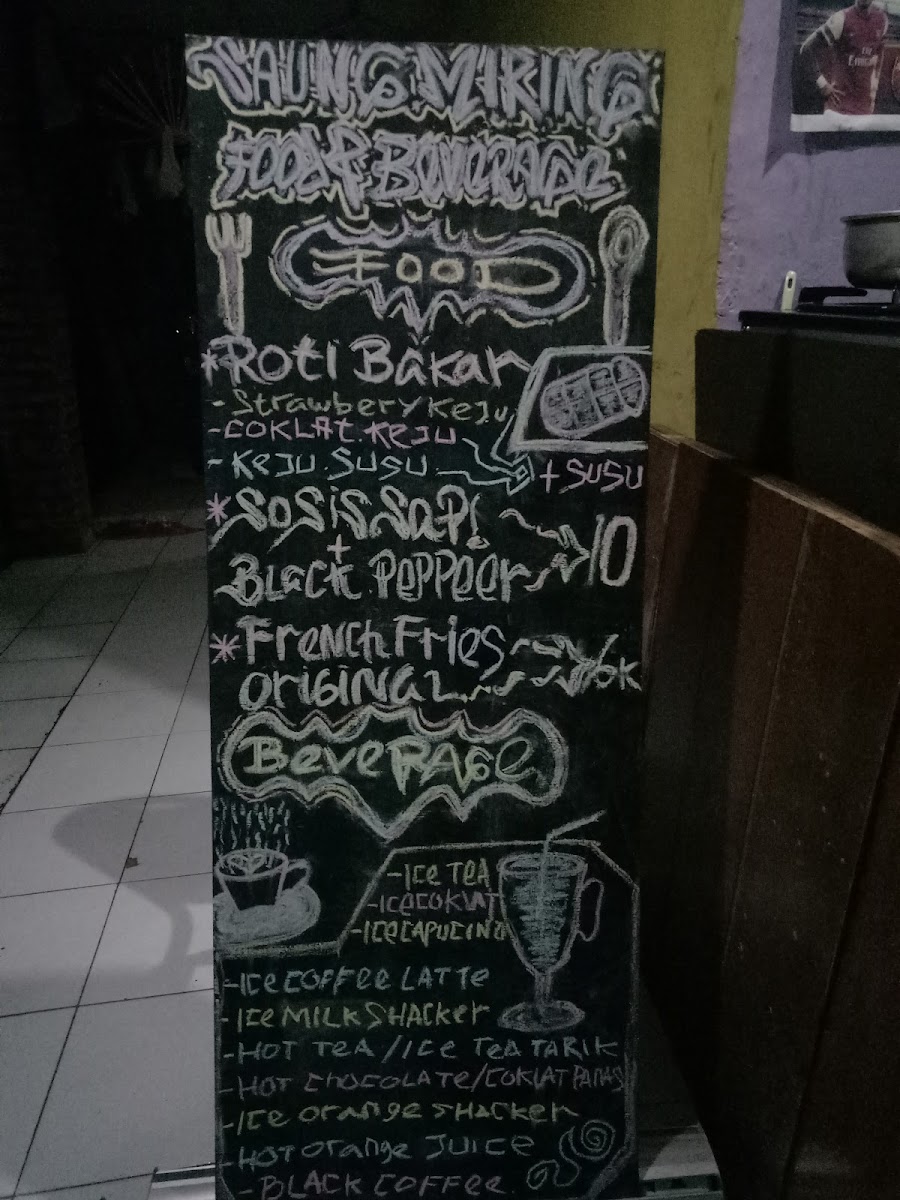 SAUNG MIRING
FOOD & BEVERAGE
FOOD
* Roti Bakar
- Strawbery Keju
- COKLAT. KEJU
- KEJU. SUSU. + SUSU
* SOSIS SAPI 10
+
BLACK PePPeer
* French Fries
ORIGINAL 6K
Beverage
- Ice Tea
- Ice COKLAT
- Ice CAPUCINO
- Ice COFFEE LATTE
- Ice MILK SHACKER
- HOT TEA / ICE TEA TARIK
- HOT CHOCOLATE / COKLAT PANAS
- Ice Orange SHACKER
- HOT Orange JUICE
- BLACK COFFEE